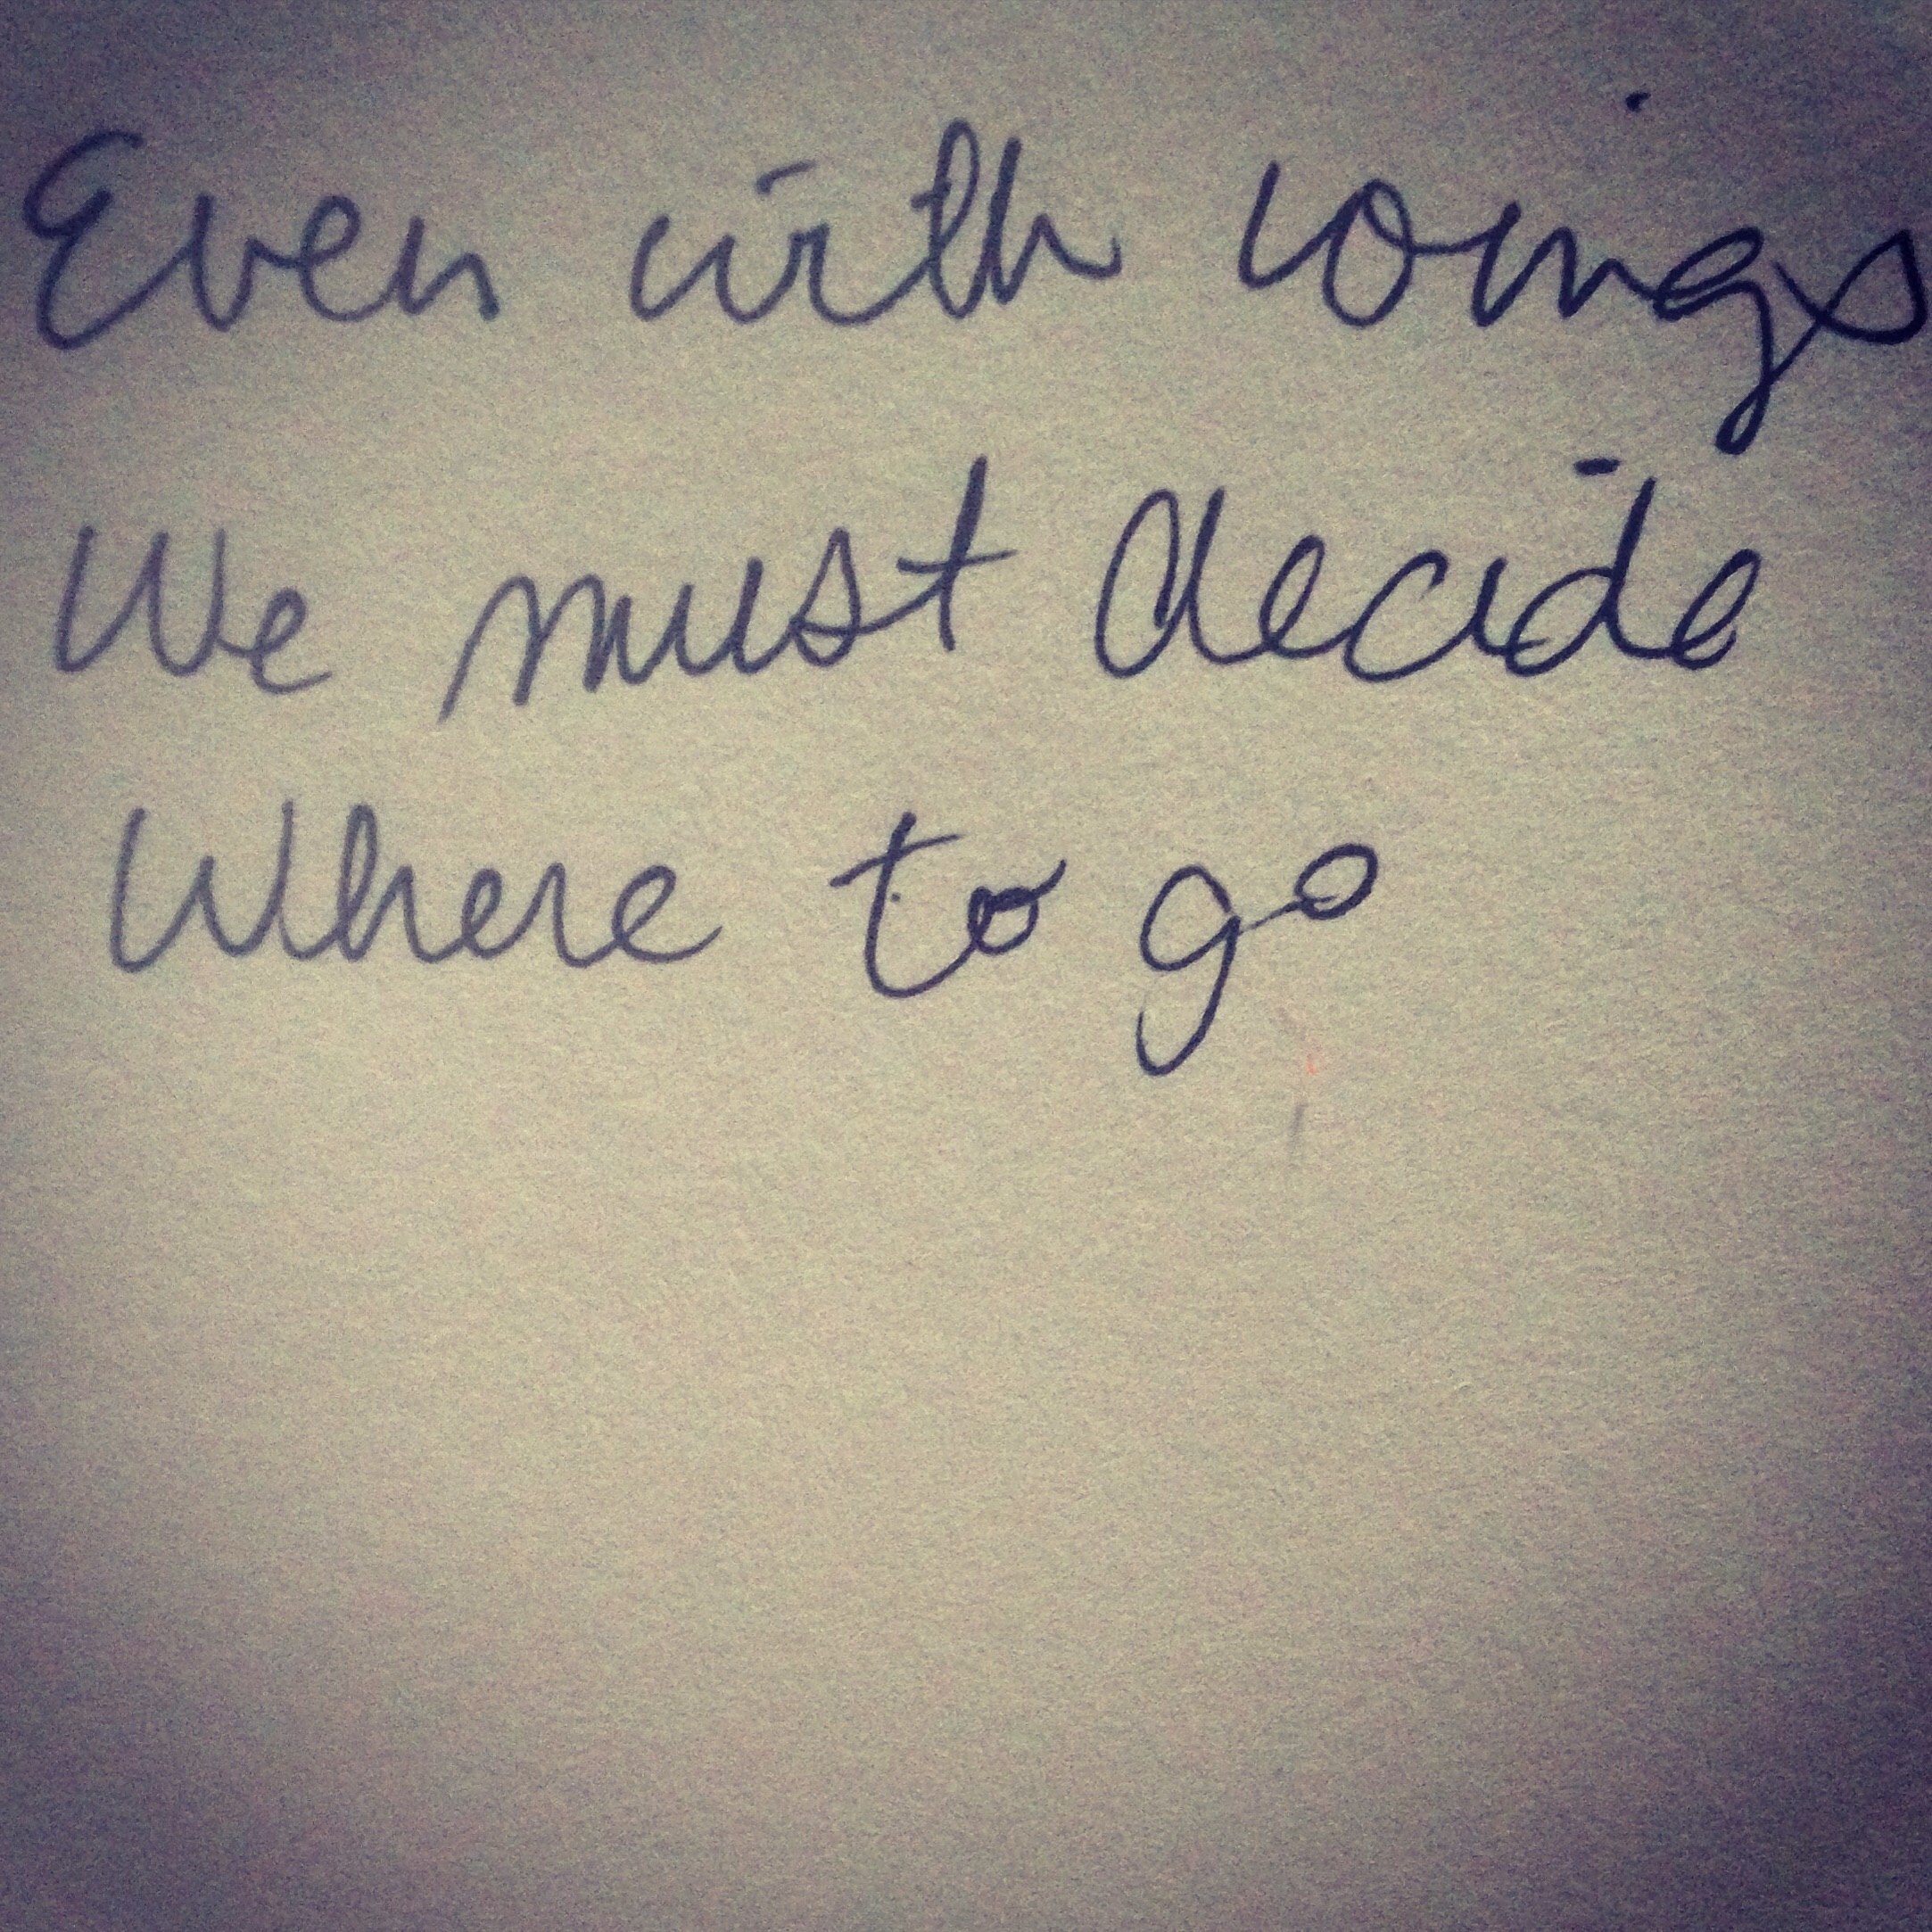 Even with wings
We must decide
Where to go